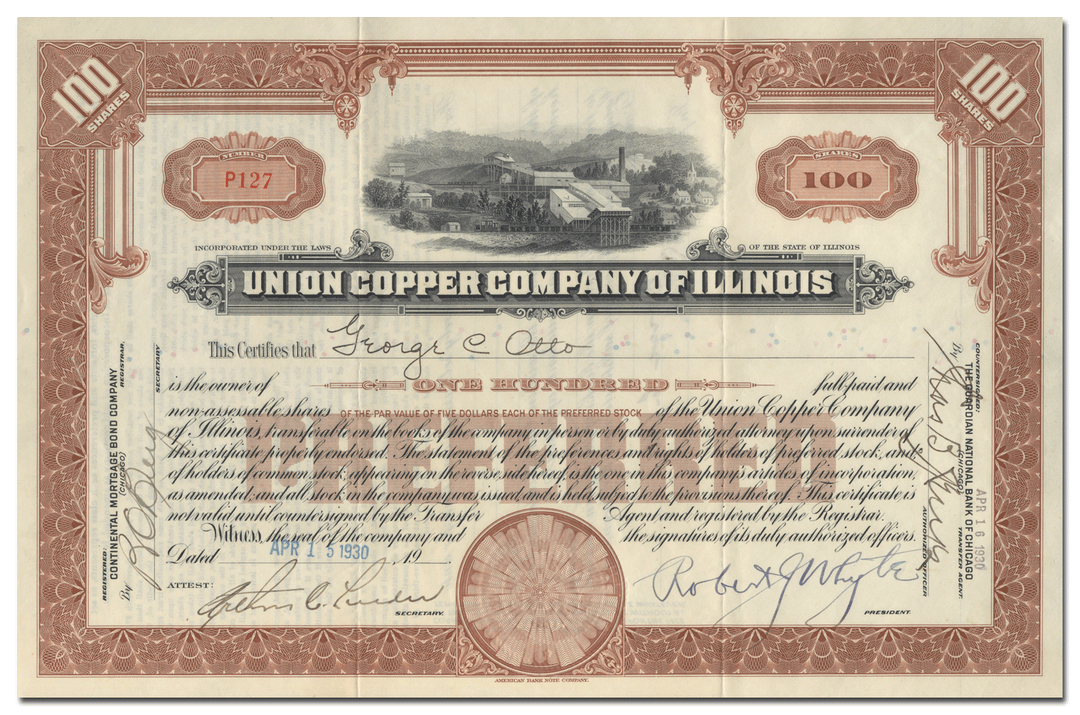 100
SHARES
100
SHARES
NUMBER
P127
SHARES
100
INCORPORATED UNDER THE LAWS
OF THE STATE OF ILLINOIS
UNION COPPER COMPANY OF ILLINOIS
This Certifies that George C Otto
is the owner of ONE HUNDRED full-paid and
non-assessable shares OF THE PAR VALUE OF FIVE DOLLARS EACH OF THE PREFERRED STOCK of the Union Copper Company
of Illinois, transferable on the books of the company in person or by duly authorized attorney upon surrender of
this certificate properly endorsed. The statement of the preferences and rights of holders of preferred stock, and
of holders of common stock, appearing on the reverse side hereof, is the one in the company's articles of incorporation,
as amended, and all stock in the company was issued and is held subject to the provisions thereof. This certificate is
not valid until countersigned by the Transfer Agent and registered by the Registrar.
Witness, the seal of the company and the signatures of its duly authorized officers.
Dated APR 15 1930 19
PREFERRED
ATTEST:
SECRETARY.
Robert J Whyte
PRESIDENT.
REGISTERED:
CONTINENTAL MORTGAGE BOND COMPANY
(CHICAGO)
REGISTRAR,
By
SECRETARY
COUNTERSIGNED:
THE GUARDIAN NATIONAL BANK OF CHICAGO
(CHICAGO)
TRANSFER AGENT.
By
AUTHORIZED OFFICER
APR 16 1930
AMERICAN BANK NOTE COMPANY.